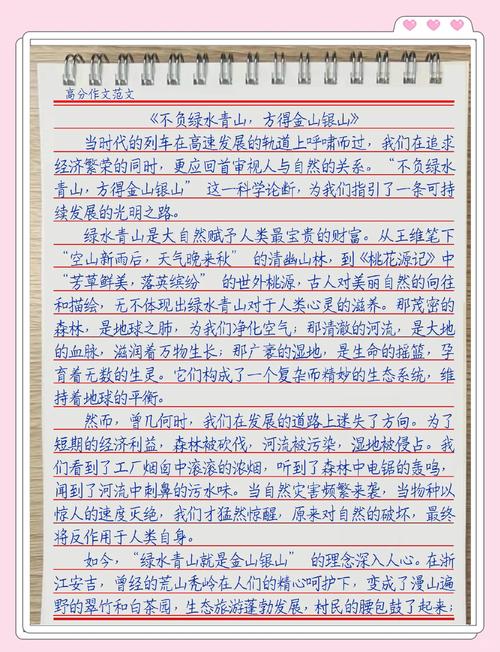 高分作文范文
《不负绿水青山，方得金山银山》
当时代的列车在高速发展的轨道上呼啸而过，我们在追求
经济繁荣的同时，更应回首审视人与自然的关系。“不负绿水
青山，方得金山银山” 这一科学论断，为我们指引了一条可持
续发展的光明之路。
绿水青山是大自然赋予人类最宝贵的财富。从王维笔下
“空山新雨后，天气晚来秋” 的清幽山林，到《桃花源记》中
“芳草鲜美，落英缤纷” 的世外桃源，古人对美丽自然的向往
和描绘，无不体现出绿水青山对于人类心灵的滋养。那茂密的
森林，是地球之肺，为我们净化空气；那清澈的河流，是大地
的血脉，滋润着万物生长；那广袤的湿地，是生命的摇篮，孕
育着无数的生灵。它们构成了一个复杂而精妙的生态系统，维
持着地球的平衡。
然而，曾几何时，我们在发展的道路上迷失了方向。为了
短期的经济利益，森林被砍伐，河流被污染，湿地被侵占。我
们看到了工厂烟囱中滚滚的浓烟，听到了森林中电锯的轰鸣，
闻到了河流中刺鼻的污水味。当自然灾害频繁来袭，当物种以
惊人的速度灭绝，我们才猛然惊醒，原来对自然的破坏，最终
将反作用于人类自身。
如今，“绿水青山就是金山银山” 的理念深入人心。在浙
江安吉，曾经的荒山秃岭在人们的精心呵护下，变成了漫山遍
野的翠竹和白茶园，生态旅游蓬勃发展，村民的腰包鼓了起来；